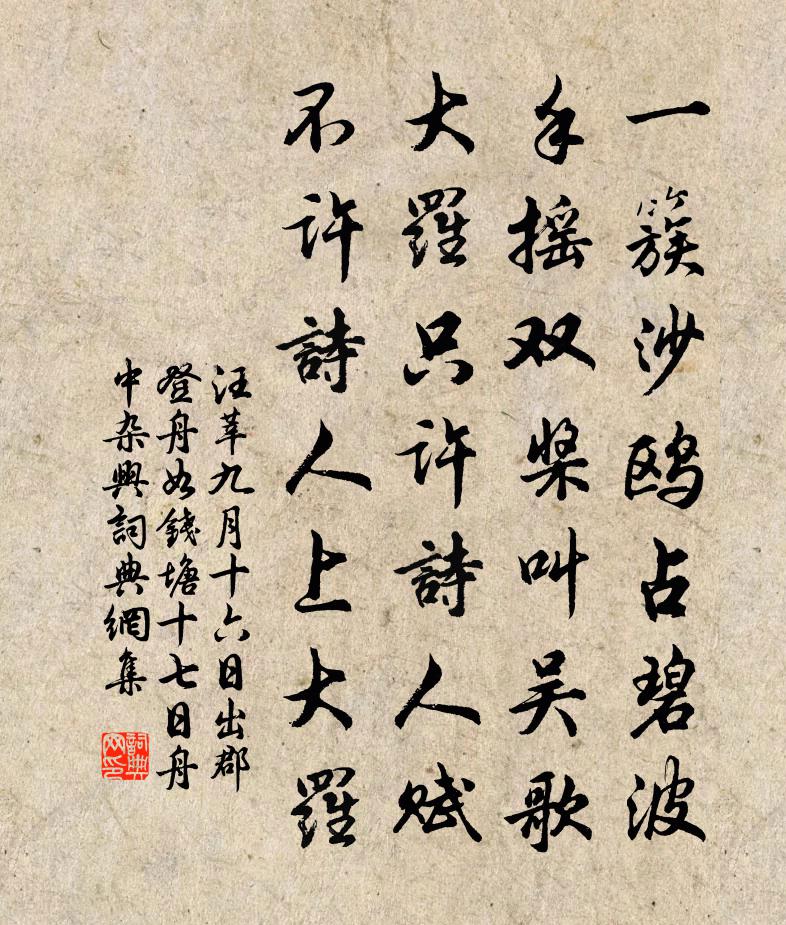 一簇沙鸥占碧波
手摇双桨叫吴歌
大羅只许詩人赋
不许詩人上大羅
汪莘九月十六日出郡
登舟如錢塘十七日舟
中杂興詞典網集
詞典
网印